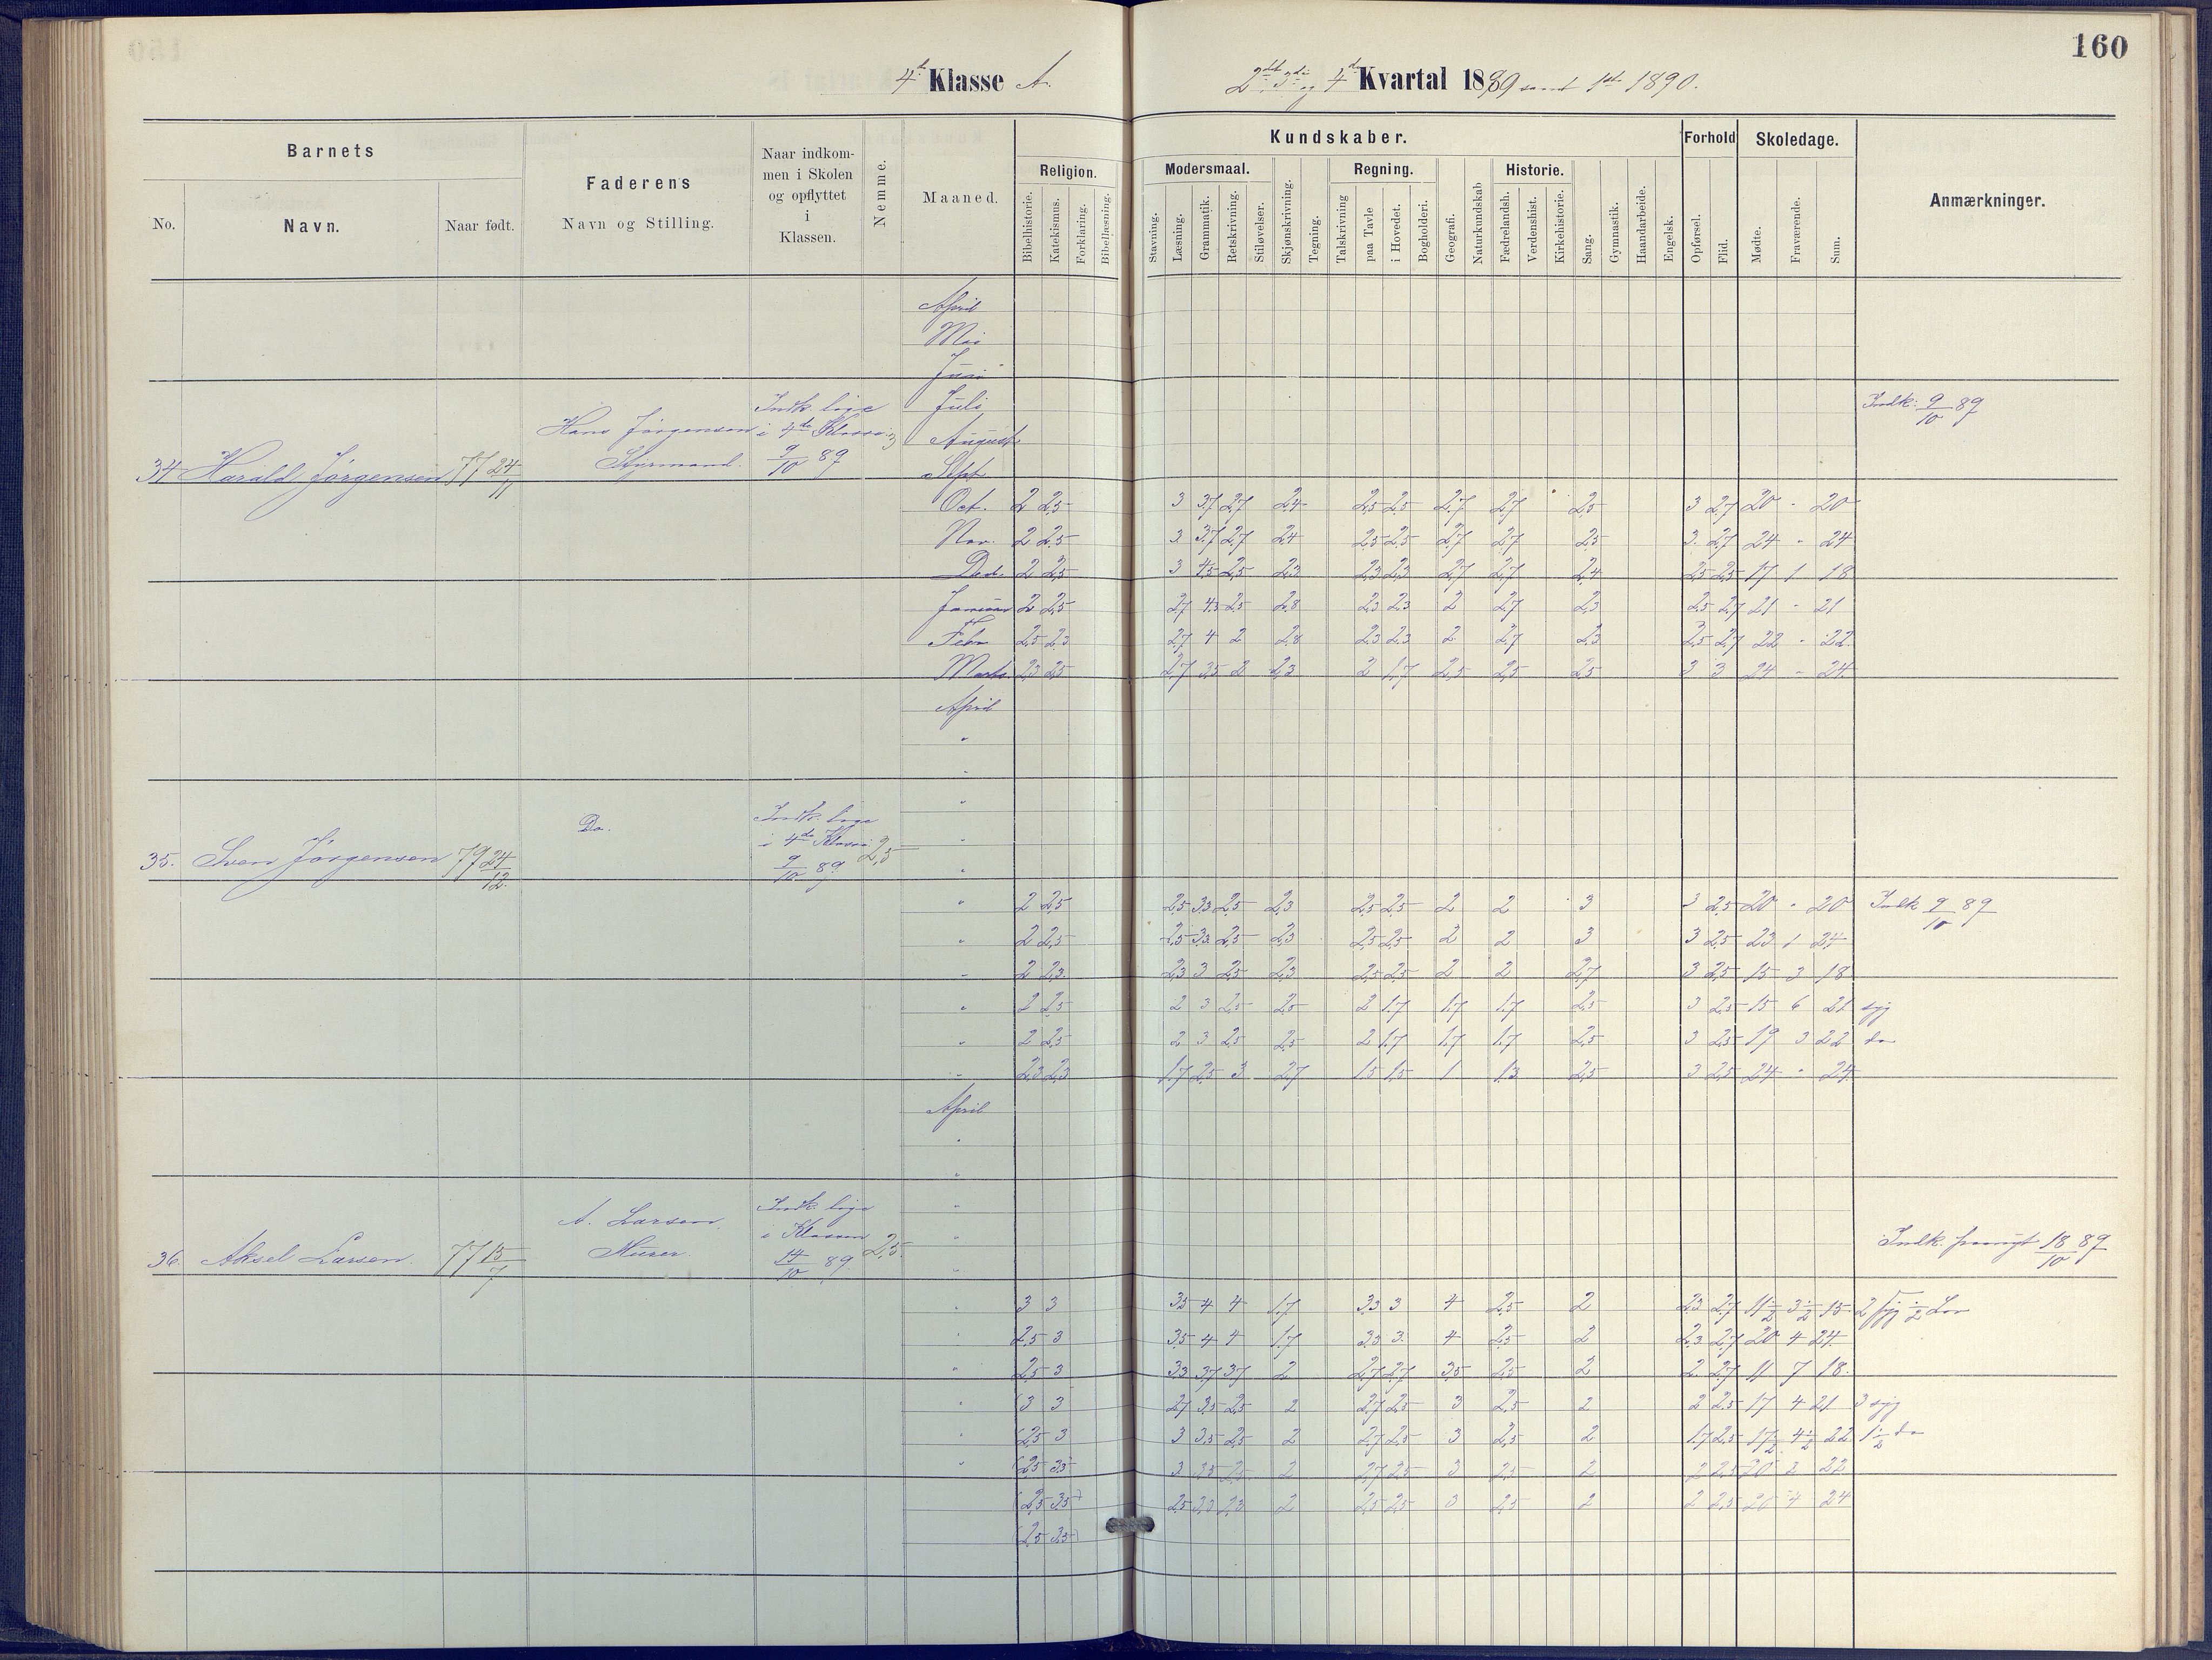 160
4de Klasse A.
2det 3die og 4de Kvartal 1889 samt 1ste 1890.
Barnets
No.
Navn.
Naar født.
Faderens
Navn og Stilling.
Naar indkom-
men i Skolen
og opflyttet
i
Klassen.
Nemme.
Maaned.
Kundskaber.
Religion.
Bibelhistorie.
Katekismus.
Forklaring.
Bibellæsning.
Modersmaal.
Stavning.
Læsning.
Grammatik.
Retskrivning.
Stiløvelser.
Skjønskrivning.
Tegning.
Regning.
Talskrivning
paa Tavle
i Hovedet.
Bogholderi.
Geografi.
Naturkundskab
Historie.
Fædrelandsh.
Verdenshist.
Kirkehistorie.
Sang.
Gymnastik.
Haandarbeide.
Engelsk.
Forhold
Opførsel.
Flid.
Skoledage.
Mødte.
Fraværende.
Sum.
Anmærkninger.
April
Mai
Juni
Juli
August
Sept
34 Harald Jørgensen 77 24/11 Hans Jørgensen Styrmand. Indk. lige i 4de Klasse 9/10 89 3
Indk: 9/10 89
Oct. 2 2,5 3 3,7 2,7 2,4 2,5 2,5 2,7 2,7 2,5 3 2,7 20 - 20
Nov. 2 2,5 3 3,7 2,7 2,4 2,5 2,5 2,7 2,7 2,5 3 2,7 24 - 24
Dec. 2 2,5 3 4,5 2,5 2,3 2,3 2,3 2,7 2,7 2,4 2,5 2,5 17 1 18
Januar 2 2,5 2,7 4,5 2,5 2,8 2,3 2,3 2 2,7 2,3 2,5 2,7 21 - 21
Febr 2,5 2,3 2,7 4 2 2,8 2,3 2,3 2 2,7 2,3 2,5 2,7 22 - 22
Marts 2,3 2,5 2,7 3,5 2 2,3 2 1,7 2,5 2,5 2,5 3 3 24 - 24
April
35. Sven Jørgensen 79 24/12 Do. Indk. lige i 4de Klasse 9/10 89 2,5
" 2 2,5 2,5 3,3 2,5 2,3 2,5 2,5 2 2 3 3 2,5 20 - 20 Indk 9/10 89
" 2 2,5 2,5 3,3 2,5 2,3 2,5 2,5 2 2 3 3 2,5 23 1 24
" 2 2,3 2,3 3 2,5 2,3 2,5 2,5 2 2 2,7 3 2,5 15 3 18
" 2 2,5 2 3 2,5 2,5 2 1,7 1,7 1,7 2,5 3 2,5 15 6 21 syg
" 2 2,5 2 3 2,5 2,5 2 1,7 1,7 1,7 2,5 3 2,5 19 3 22 do
" 2,3 2,3 1,7 2,5 3 2,7 1,5 1,5 1 1,3 2,5 3 2,5 24 - 24
April
36. Aksel Larsen. 77 15/7 A. Larsen Murer. Indk. lige i Klassen 14/10 89 2,5.
Indk. 18/10 89
" 3 3 3,5 4 4 1,7 3,3 3 4 2,5 2 2,3 2,7 11½ 3½ 15 2 syg ½ Lov
" 2,5 3 3,5 4 4 1,7 3,3 3 4 2,5 2 2,3 2,7 20 4 24
" 2,5 3 3,3 3,7 3,7 2 2,7 2,7 3,5 2,5 2 2 2,7 11 7 18
" 3 3 2,7 3,5 2,5 2 2,7 2,5 3 2,5 2 2 2,5 17 4 21 3 syg
" 2,5 3 3 3,5 2,5 2 2,7 2,5 3 2,5 2 1,7 2,5 17½ 4½ 22 1½ do
" 2,5 3,5 3 3,5 2,5 2 2,7 2,5 3 2,5 2 2 2,5 20 2 22
(2,5 3,5) 2,5 2 2,5 2,5 3 2,5 2 2 2,5 20 4 24
(2,5 3,5)